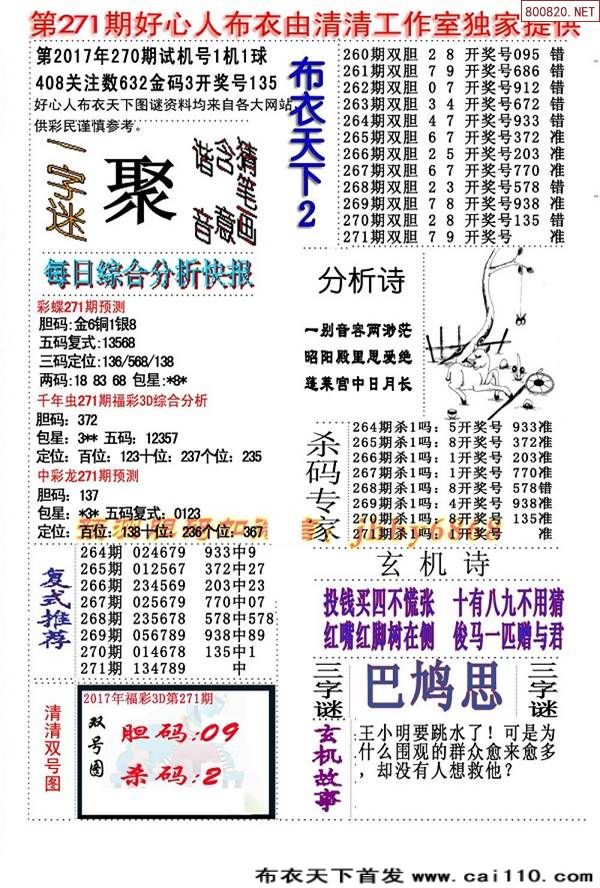 800820.NET
第271期好心人布衣由清清工作室独家提供
第2017年270期试机号1机1球
408关注数632金码3开奖号135
好心人布衣天下图谜资料均来自各大网站,
供彩民谨慎参考。
一字谜
聚
猜笔画
含意
谐音
布衣天下2
260期双胆 2 8 开奖号095 错
261期双胆 7 9 开奖号686 错
262期双胆 0 7 开奖号912 错
263期双胆 3 4 开奖号672 错
264期双胆 4 5 开奖号933 错
265期双胆 6 7 开奖号372 准
266期双胆 2 5 开奖号203 准
267期双胆 6 7 开奖号770 准
268期双胆 2 3 开奖号578 错
269期双胆 7 8 开奖号938 准
270期双胆 2 8 开奖号135 错
271期双胆 7 9 开奖号 准
每日综合分析快报
彩蝶271期预测
胆码:金6铜1银8
五码复式:13568
三码定位:136/568/138
两码:18 83 68 包星:*8*
千年虫271期福彩3D综合分析
胆码: 372
包星: 3** 五码: 12357
定位: 百位: 123十位: 237个位: 235
中彩龙271期预测
胆码: 137
包星: *3* 五码复式: 0123
定位: 百位: 138十位: 236个位: 367
分析诗
一别音客两渺茫
昭阳殿里恩爱绝
蓬莱宫中日月长
杀码专家
264期杀1吗: 5开奖号 933准
265期杀1吗: 8开奖号 372准
266期杀1吗: 1开奖号 203准
267期杀1吗: 1开奖号 770准
268期杀1吗: 8开奖号 578错
269期杀1吗: 4开奖号 938准
270期杀1吗: 8开奖号 135准
271期杀1吗: 1开奖号 准
复式推荐
264期 024679 933中9
265期 012567 372中27
266期 234569 203中23
267期 025679 770中07
268期 235678 578中578
269期 056789 938中89
270期 014678 135中1
271期 134789 中
玄机诗
投钱买四不慌张 十有八九不用猜
红嘴红脚树在侧 俊马一匹赠与君
三字谜
巴鸠思
三字谜
清清双号图
2017年福彩3D第271期
双号图
胆码:09
杀码:2
玄机故事
王小明要跳水了！可是为
什么围观的群众愈来愈多
，却没有人想救他？
布衣天下首发 www.cai110.com